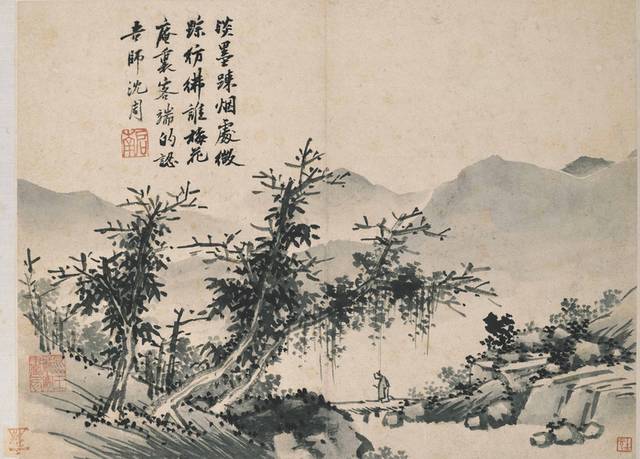 淡墨踈烟處微
踪仿彿誰梅花
庵裏客端的認
吾師沈周
啟南